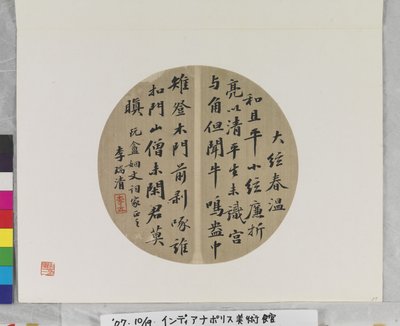 大絃春温
和且平小絃廉折
亮以清平生未識宮
与角但聞牛鳴盎中
雉登木門前剥啄誰
扣門山僧未閑君莫
瞋 玩盦姻丈詞家正之
李瑞清
'07.10/9. インディアナポリス美術館